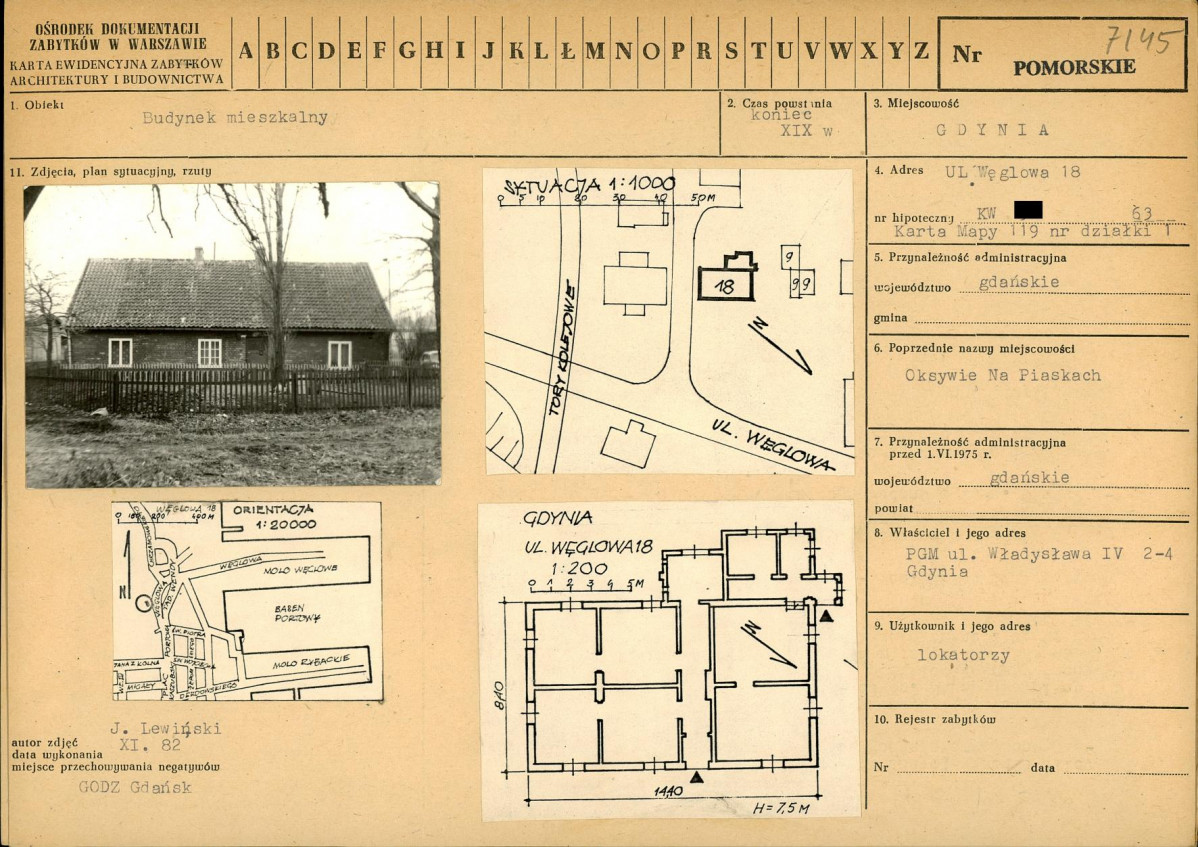 OŚRODEK DOKUMENTACJI
ZABYTKÓW W WARSZAWIE
KARTA EWIDENCYJNA ZABYTKÓW
ARCHITEKTURY I BUDOWNICTWA
A B C D E F G H I J K L Ł M N O P R S T U V W X Y Z
Nr 7145
POMORSKIE
1. Obiekt
Budynek mieszkalny
2. Czas powstania
koniec
XIX w
3. Miejscowość
GDYNIA
4. Adres UL Węglowa 18
nr hipoteczny KW 63
Karta Mapy 119 nr działki 1
5. Przynależność administracyjna
województwo gdańskie
gmina
6. Poprzednie nazwy miejscowości
Oksywie Na Piaskach
7. Przynależność administracyjna
przed 1.VI.1975 r.
województwo gdańskie
powiat
8. Właściciel i jego adres
PGM ul. Władysława IV 2-4
Gdynia
9. Użytkownik i jego adres
lokatorzy
10. Rejestr zabytków
Nr data
11. Zdjęcia, plan sytuacyjny, rzuty
SYTUACJA 1:1000
0 5 10 20 30 40 50M
18
9
9 9
N
TORY KOLEJOWE
UL. WĘGLOWA
WĘGLOWA 18
ORIENTACJA
1:20000
0 100 200 400M
N
WĘGLOWA
MOLO WĘGLOWE
BASEN
PORTOWY
MOLO RYBACKIE
WĘGLOWA
TAD. WENDY
PORTOWA
ŚW. PIOTRA
ŚW. WOJCIECHA
JANA Z KOLNA
PLAC
KASZUBSKI
DERDOWSKIEGO
GDYNIA
UL. WĘGLOWA 18
1:200
0 1 2 3 4 5M
N
8,40
14,40
H=7,5M
J. Lewiński
autor zdjęć
XI. 82
data wykonania
miejsce przechowywania negatywów
GODZ Gdańsk